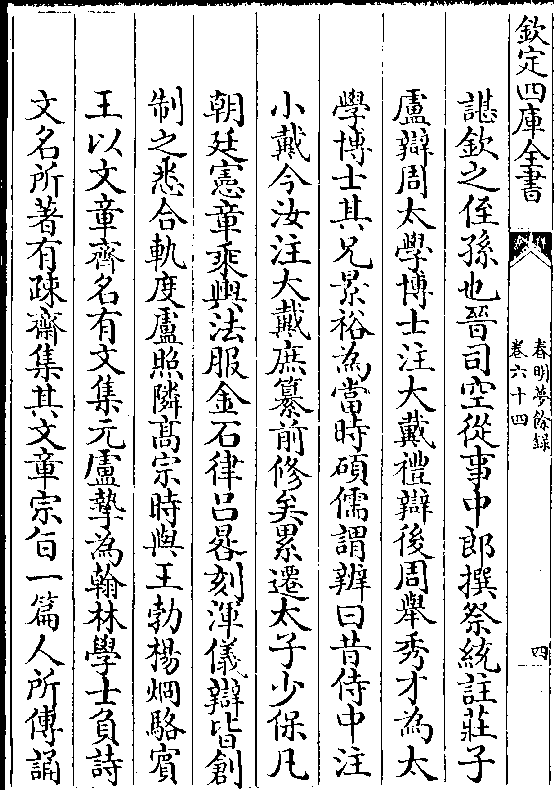 欽定四庫全書
春明夢餘録
卷六十四
四
諶欽之侄孫也晉司空從事中郎撰祭統註莊子
盧辯周太學博士注大戴禮辯後周舉秀才為太
學博士其兄景裕為當時碩儒謂辨曰昔侍中注
小戴今汝注大戴庶纂前修矣累遷太子少保凡
朝廷憲章乘輿法服金石律呂晷刻渾儀辯皆創
制之悉合軌度盧照隣髙宗時與王勃楊烱駱賓
王以文章齊名有文集元盧摯為翰林學士負詩
文名所著有疎齋集其文章宗旨一篇人所傳誦